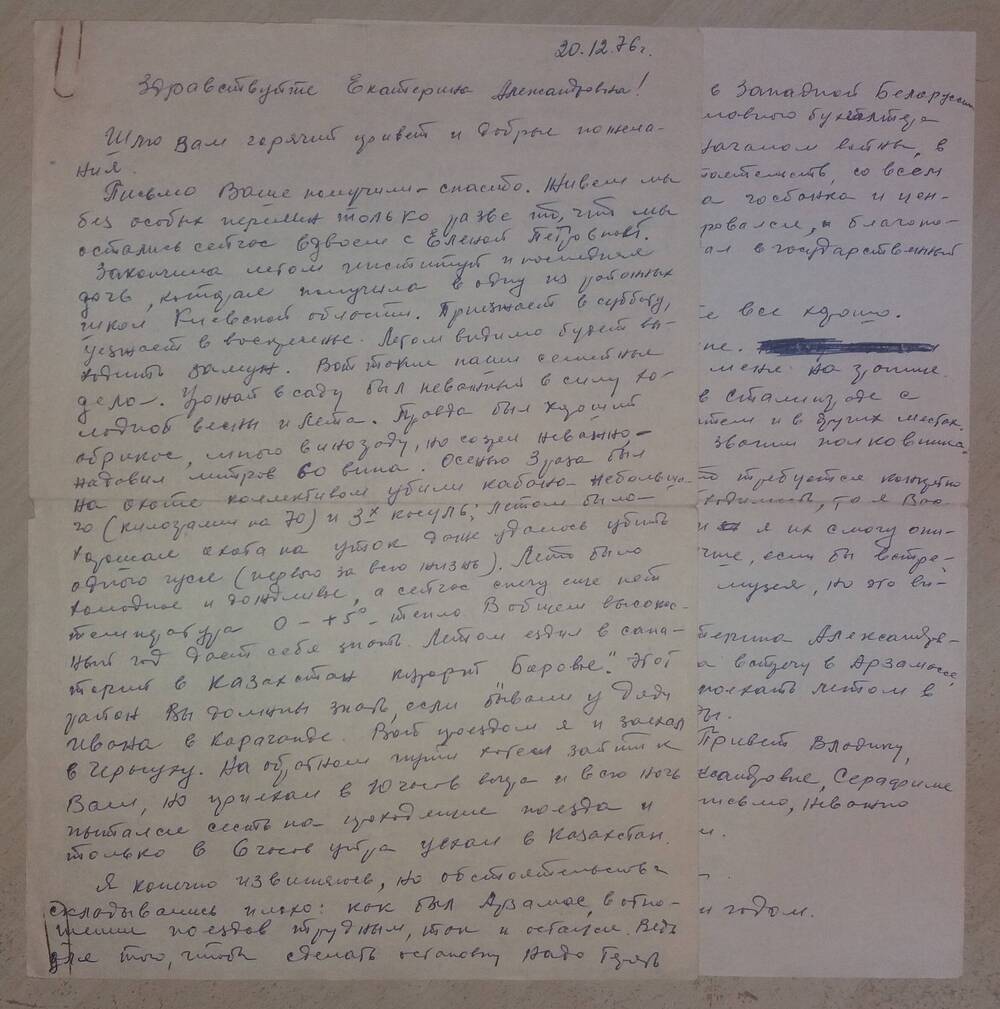 20.12.76г.
Здравствуйте Екатерина Александровна!
Шлю Вам горячий привет и добрые пожела-
ния.
Письмо Ваше получили – спасибо. Живем мы
без особых перемен только разве то, что мы
остались сейчас вдвоем с Еленой Петровной.
Закончила летом институт и последняя
дочь, которая получила в одну из районных
школ Киевской области. Приезжает в субботу,
уезжает в воскресенье. Летом видимо будет вы-
ходить замуж. Вот такие наши семейные
дела. Урожай в саду был неважный в силу хо-
лодной весны и лета. Правда был хороший
абрикос, много винограду, но созрел неважно,
надавил литров 60 вина. Осенью 3 раза был
на охоте коллективом убили кабана небольшо-
го (килограмм на 70) и 3х косуль; летом была
хорошая охота на уток даже удалось убить
одного гуся (первого за всю жизнь). Лето было
холодное и дождливое, а сейчас снегу еще нет
температура 0 – +5° – тепло. В общем высокос-
ный год дает себя знать. Летом ездил в сана-
торий в Казахстан курорт "Боровое". Этот
район Вы должны знать, если бывали у дяди
Ивана в Караганде. Вот проездом я и заехал
в Чернуху. На обратном пути хотел зайти к
Вам, но приехал в 10 часов вечера и всю ночь
пытался сесть на проходящие поезда и
только в 6 часов утра уехал в Казахстан.
Я конечно извиняюсь, но обстоятельства
складывались плохо: как был Арзамас, в отно-
шении поездов трудным, так и остался. Ведь
для того, чтобы сделать остановку надо терять
в Западной Белоруссии
главного бухгалтера
началом войны, в
со всем
госбанка и цен-
благопо-
в государственный
все хорошо.
меня на фронте
в Сталинграде с
и в других местах.
звании полковника
то требуется конкретно
то я Вам
и я их смогу опи-
если бы встре-
музея, но это ви-
Александро-
встречу в Арзамасе,
поехать летом в
Привет Владику,
Серафиме
письмо, неважно
годом.